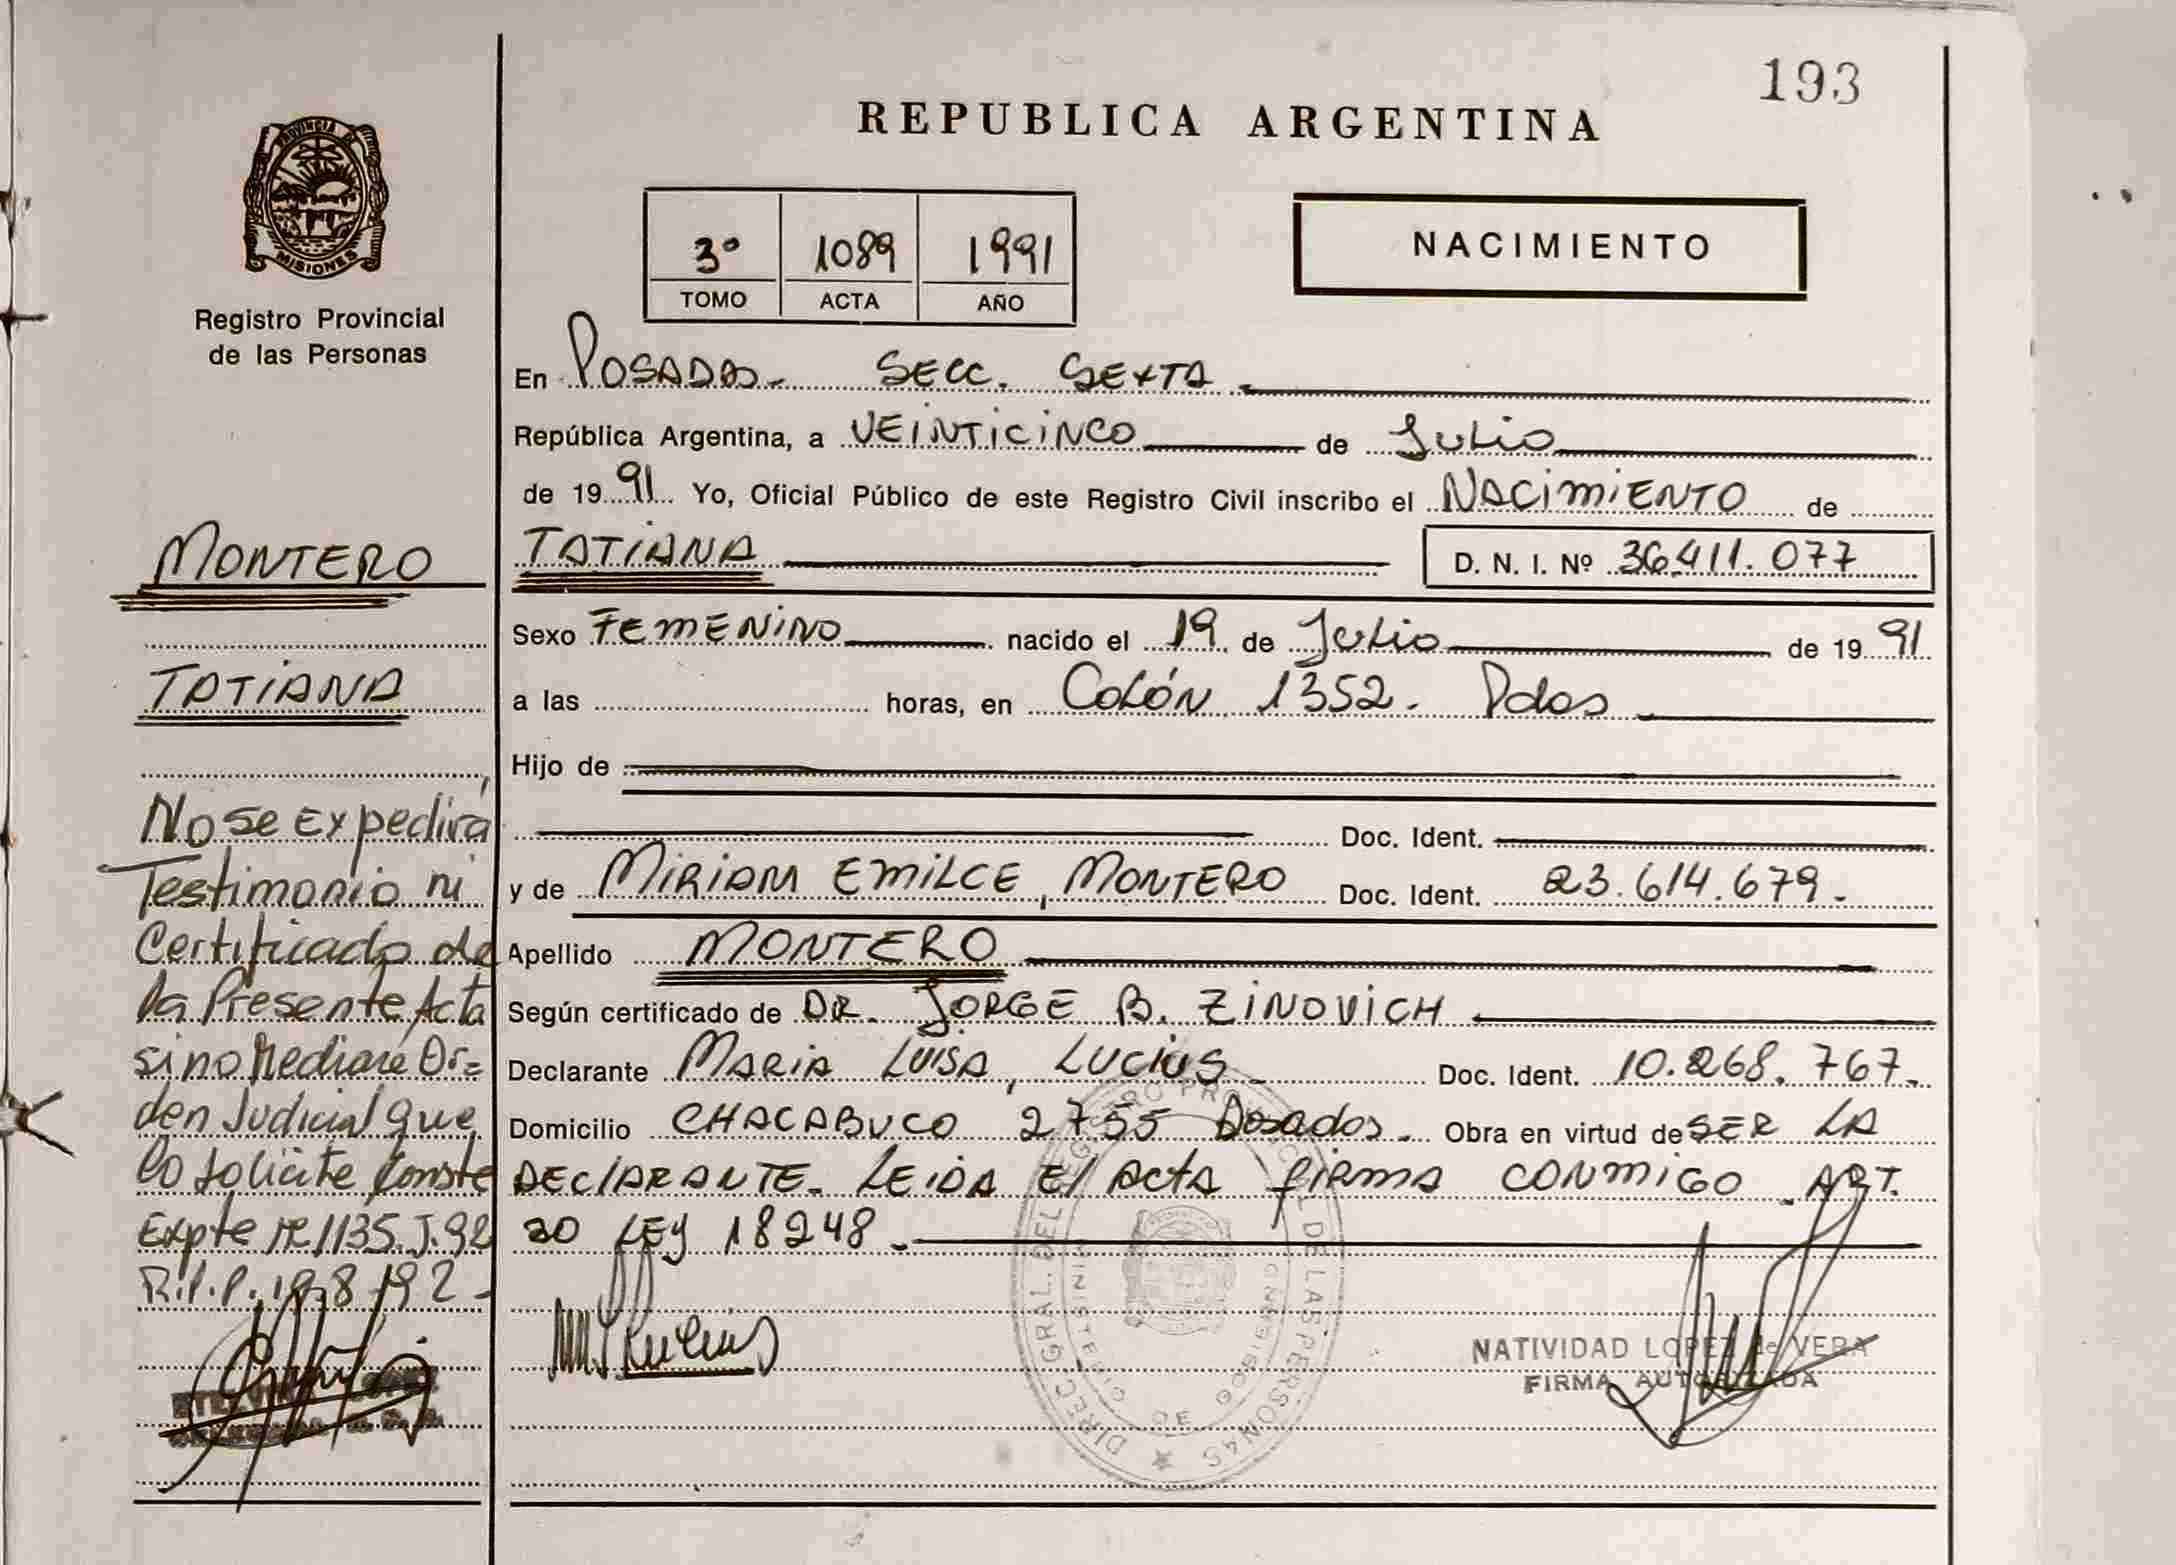 193
REPUBLICA ARGENTINA
PROVINCIA DE
MISIONES
Registro Provincial
de las Personas
3º 1089 1991
TOMO ACTA AÑO
NACIMIENTO
En POSADAS. SECC. SEXTA
República Argentina, a VEINTICINCO de Julio
de 1991 Yo, Oficial Público de este Registro Civil inscribo el NACIMIENTO de
TATIANA D. N. I. Nº 36.411.077
Sexo FEMENINO nacido el 19 de Julio de 1991
a las horas, en COLÓN 1352. Pdas
Hijo de
Doc. Ident.
y de MIRIAM EMILCE, MONTERO Doc. Ident. 23.614.679.
Apellido MONTERO
Según certificado de DR. JORGE B. ZINOVICH
Declarante MARIA LUISA, LUCIUS Doc. Ident. 10.268.767.
Domicilio CHACABUCO 2755 Posadas. Obra en virtud de SER LA
DECLARANTE. LEIDA El ACTA FIRMA CONMIGO. ART.
20 LEY 18248.
MONTERO
TATIANA
No se Expedirá
Testimonio ni
Certificado de
la Presente Acta
sino Mediare Or=
den Judicial que
lo solicite Conste
Expte nº 1135.J.92
R.P.P. 19-8-92-
DIREC. GRAL. DEL REGISTRO PROVINCIAL DE LAS PERSONAS
MINISTERIO DE GOBIERNO
NATIVIDAD LOPEZ de VERA
FIRMA AUTORIZADA